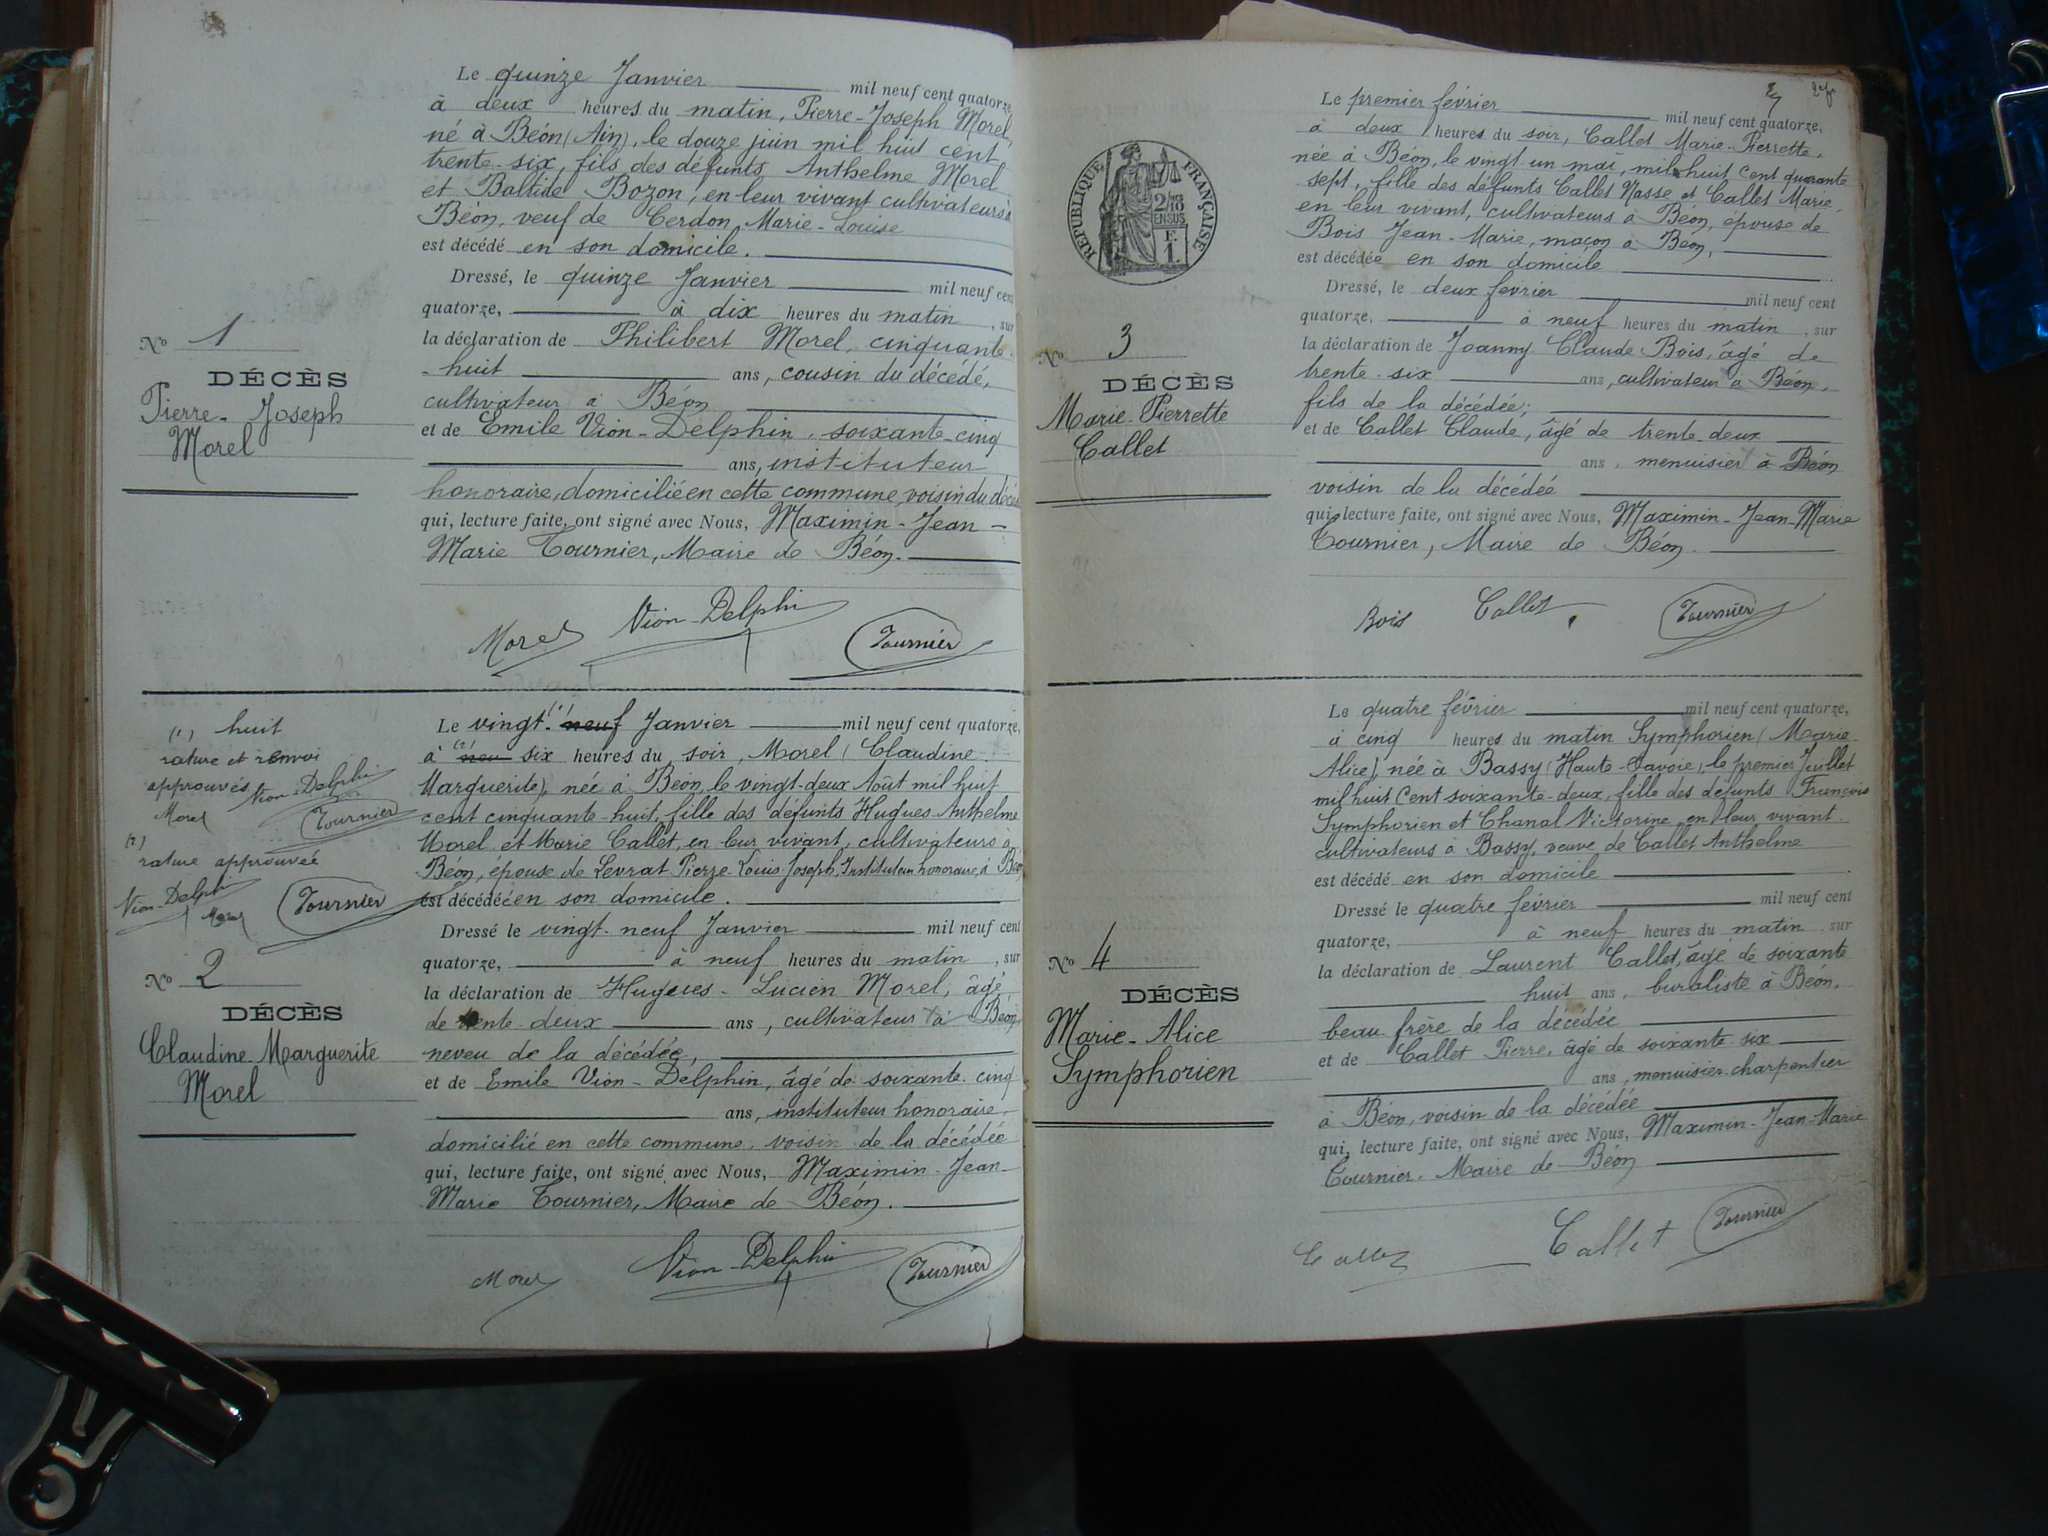 Le quinze Janvier mil neuf cent quatorze,
à deux heures du matin, Pierre-Joseph Morel,
né à Béon (Ain), le douze juin mil huit cent
trente-six, fils des défunts Anthelme Morel
et Baltide Bozon, en leur vivant cultivateurs à
Béon, veuf de Cerdon Marie-Louise
est décédé en son domicile.
Dressé, le quinze Janvier mil neuf cent
quatorze, à dix heures du matin, sur
la déclaration de Philibert Morel, cinquante-
-huit ans, cousin du décédé,
cultivateur à Béon
et de Emile Vion-Delphin, soixante-cinq
ans, instituteur
honoraire, domicilié en cette commune, voisin du décédé
qui, lecture faite, ont signé avec Nous, Maximin-Jean-
Marie Tournier, Maire de Béon.
Morel Vion-Delphin Tournier
No 1
DÉCÈS
Pierre-Joseph
Morel
Le vingt-(1) neuf Janvier mil neuf cent quatorze,
à (2) neu six heures du soir, Morel (Claudine
Marguerite), née à Béon, le vingt-deux Août mil huit
cent cinquante-huit, fille des défunts Hugues-Anthelme
Morel et Marie Callet, en leur vivant, cultivateurs à
Béon, épouse de Levrat Pierre-Louis-Joseph, Instituteur honoraire, à Béon,
est décédée en son domicile.
Dressé le vingt-neuf Janvier mil neuf cent
quatorze, à neuf heures du matin, sur
la déclaration de Hugues-Lucien Morel, âgé
de trente-deux ans, cultivateur à Béon,
neveu de la décédée,
et de Emile Vion-Delphin, âgé de soixante-cinq
ans, instituteur honoraire,
domicilié en cette commune, voisin de la décédée
qui, lecture faite, ont signé avec Nous, Maximin-Jean-
Marie Tournier, Maire de Béon.
Morel Vion-Delphin Tournier
(1) huit
rature et renvoi
approuvés Vion-Delphin
Morel Tournier
(2)
rature approuvée
Vion-Delphin Morel Tournier
No 2
DÉCÈS
Claudine-Marguerite
Morel
RÉPUBLIQUE FRANÇAISE
2/10
EN SUS
F.
1.
Le premier février mil neuf cent quatorze,
à deux heures du soir, Callet Marie-Pierrette,
née à Béon, le vingt-un mai, mil huit cent quarante
sept, fille des défunts Callet Nasse et Callet Marie,
en leur vivant, cultivateurs à Béon, épouse de
Bois Jean-Marie, maçon à Béon,
est décédée en son domicile
Dressé, le deux février mil neuf cent
quatorze, à neuf heures du matin, sur
la déclaration de Joanny Claude Bois, âgé de
trente-six ans, cultivateur à Béon,
fils de la décédée;
et de Callet Claude, âgé de trente-deux
ans, menuisier à Béon
voisin de la décédée
qui, lecture faite, ont signé avec Nous, Maximin-Jean-Marie
Tournier, Maire de Béon.
Bois Callet Tournier
No 3
DÉCÈS
Marie-Pierrette
Callet
Le quatre février mil neuf cent quatorze,
à cinq heures du matin Symphorien (Marie
Alice), née à Bassy (Haute-Savoie), le premier Juillet
mil huit cent soixante-deux, fille des défunts François
Symphorien et Chanal Victorine en leur vivant
cultivateurs à Bassy, veuve de Callet Anthelme
est décédé en son domicile
Dressé le quatre février mil neuf cent
quatorze, à neuf heures du matin sur
la déclaration de Laurent Callet, âgé de soixante
huit ans, buraliste à Béon,
beau-frère de la décédée
et de Callet Pierre, âgé de soixante-six
ans, menuisier-charpentier
à Béon, voisin de la décédée
qui, lecture faite, ont signé avec Nous, Maximin-Jean-Marie
Tournier, Maire de Béon
Callet Callet Tournier
No 4
DÉCÈS
Marie-Alice
Symphorien